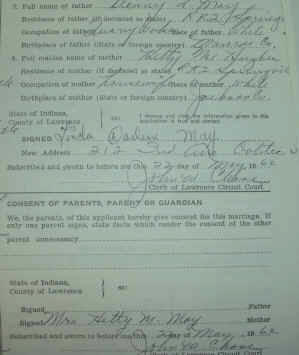 3. Full name of father Henry L. May
Residence of father (if deceased so state) R.R.2 Springville
Occupation of father Quarry Worker Race of father White
Birthplace of father (State or foreign country) Monroe Co.
4. Full maiden name of mother Hetty
Residence of mother (if deceased so state) R.R.2 Springville
Occupation of mother Housewife Race of mother White
Birthplace of mother (State or foreign country) Jackson Co.
State of Indiana,
County of Lawrence
ss:
I depose and state the information given in this application is true and correct
SIGNED Linda Darlene May
New Address 212 3rd Ave Oolitic
Subscribed and sworn to before me this 22 day of May 1962
John W Chase
Clerk of Lawrence Circuit Court.
CONSENT OF PARENTS, PARENT OR GUARDIAN
We, the parents, of this applicant hereby give consent for this marriage. If
only one parent signs, state facts which render the consent of the other
parent unnecessary
State of Indiana,
County of Lawrence
ss:
Signed Father
Signed Mrs Hetty M. May Mother
Subscribed and sworn to before me this 22 day of May, 1962
John W Chase
Clerk of Lawrence Circuit Court